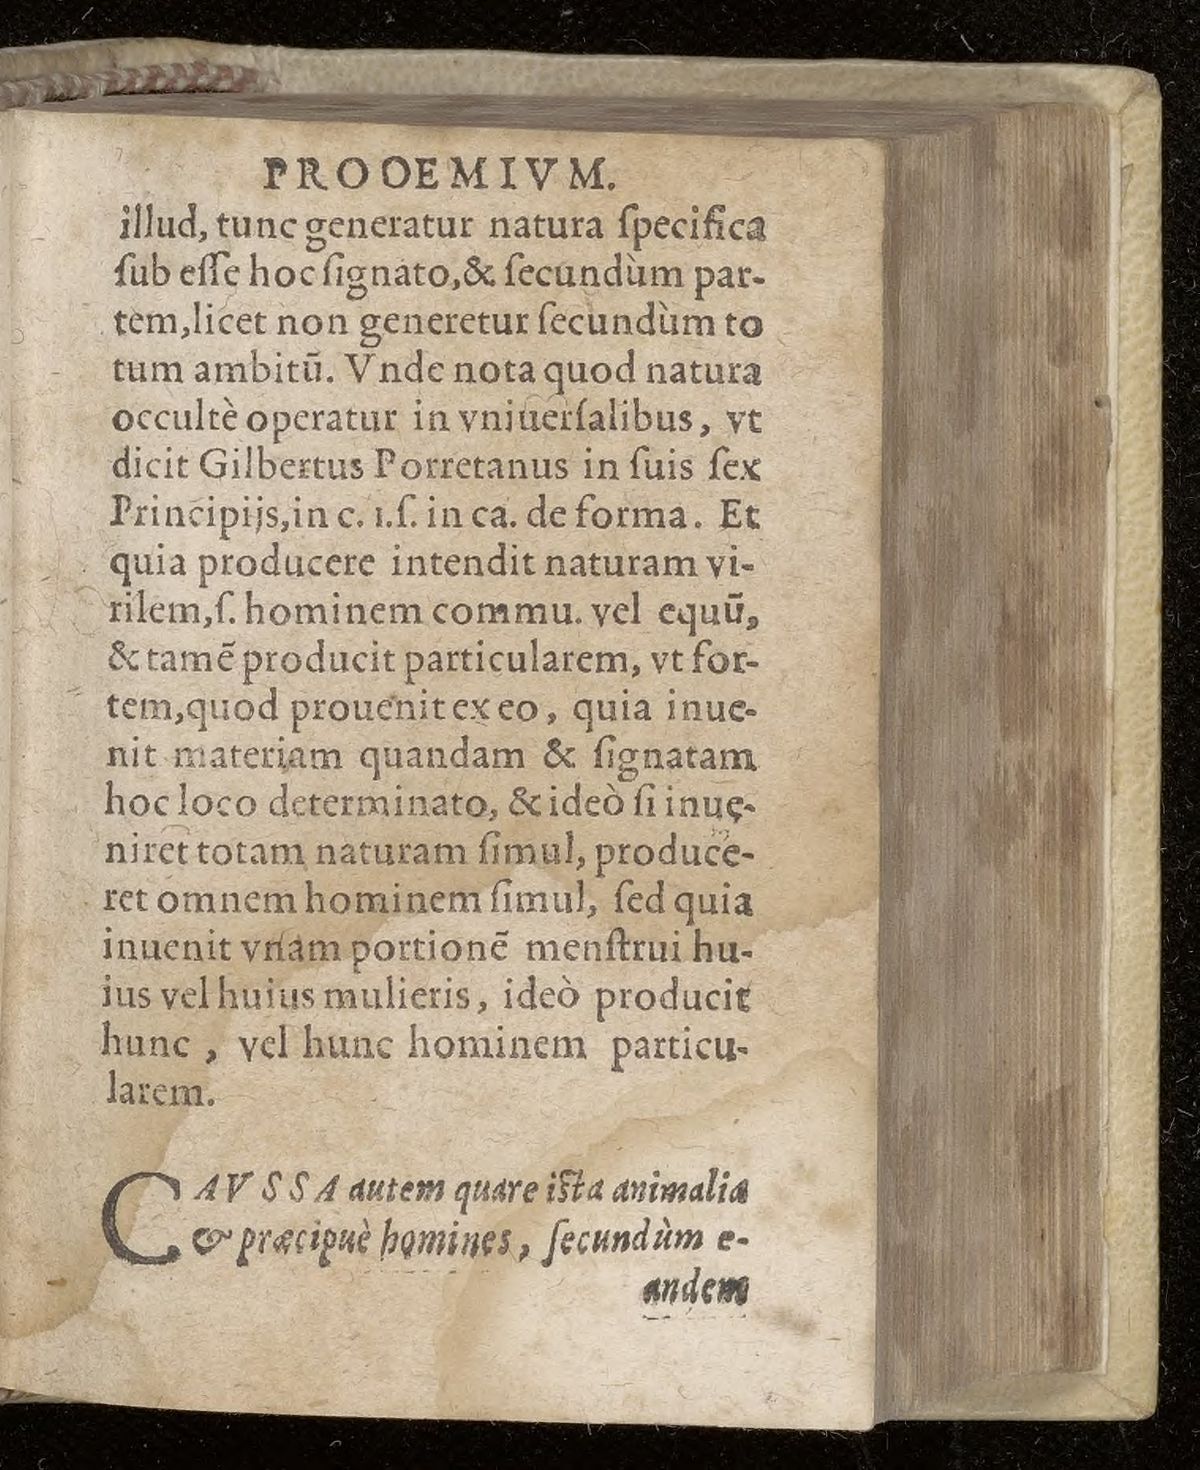 PROOEMIVM.
illud, tunc generatur natura ſpecifica
ſub eſſe hoc ſignato, & ſecundùm par-
tem, licet non generetur ſecundùm to
tum ambitū. Vnde nota quod natura
occultè operatur in vniuerſalibus, vt
dicit Gilbertus Porretanus in ſuis ſex
Principijs, in c. 1. ſ. in ca. de forma. Et
quia producere intendit naturam vi-
rilem, ſ. hominem commu. vel equū,
& tamē producit particularem, vt for-
tem, quod prouenit ex eo, quia inue-
nit materiam quandam & ſignatam
hoc loco determinato, & ideò ſi inue-
niret totam naturam ſimul, produce-
ret omnem hominem ſimul, ſed quia
inuenit vnam portionē menſtrui hu-
ius vel huius mulieris, ideò producit
hunc, vel hunc hominem particu-
larem.
CAVSSA autem quare iſta animalia
& præcipuè homines, ſecundùm e-
andem